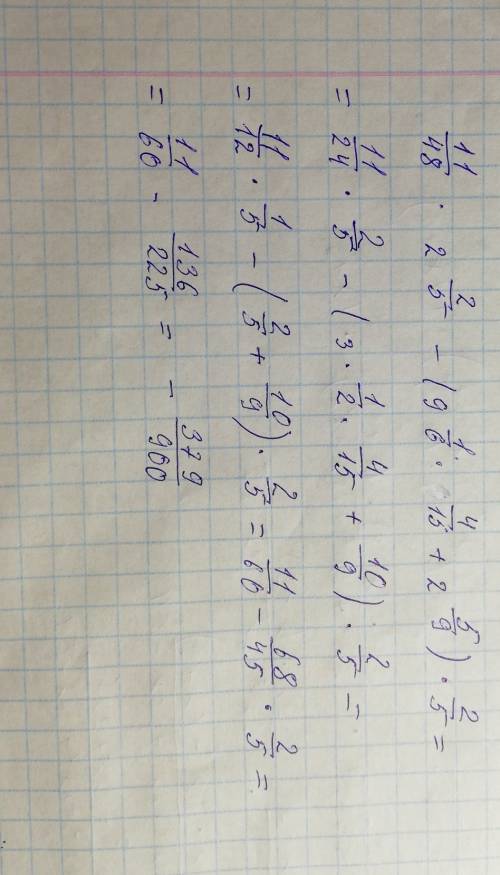 11/48 · 2 2/5 − (9 1/6 · 4/15 + 2 5/9) · 2/5 =
= 11/24 · 2/5 − (3 · 1/2 · 4/15 + 10/9) · 2/5 =
= 11/12 · 1/5 − (2/5 + 10/9) · 2/5 = 11/60 − 68/45 · 2/5 =
= 11/60 - 136/225 = − 379/900